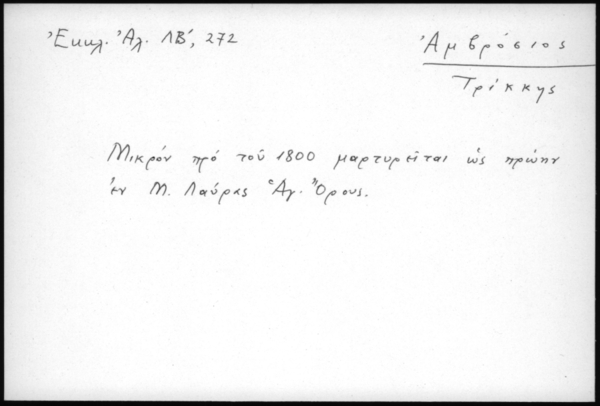 Ἐκκλ. Ἀλ. ΛΒ', 272
Ἀμβρόσιος
Τρίκκης
Μικρόν πρό τοῦ 1800 μαρτυρεῖται ὡς πρώην
ἐν Μ. Λαύρας Ἁγ. Ὄρους.